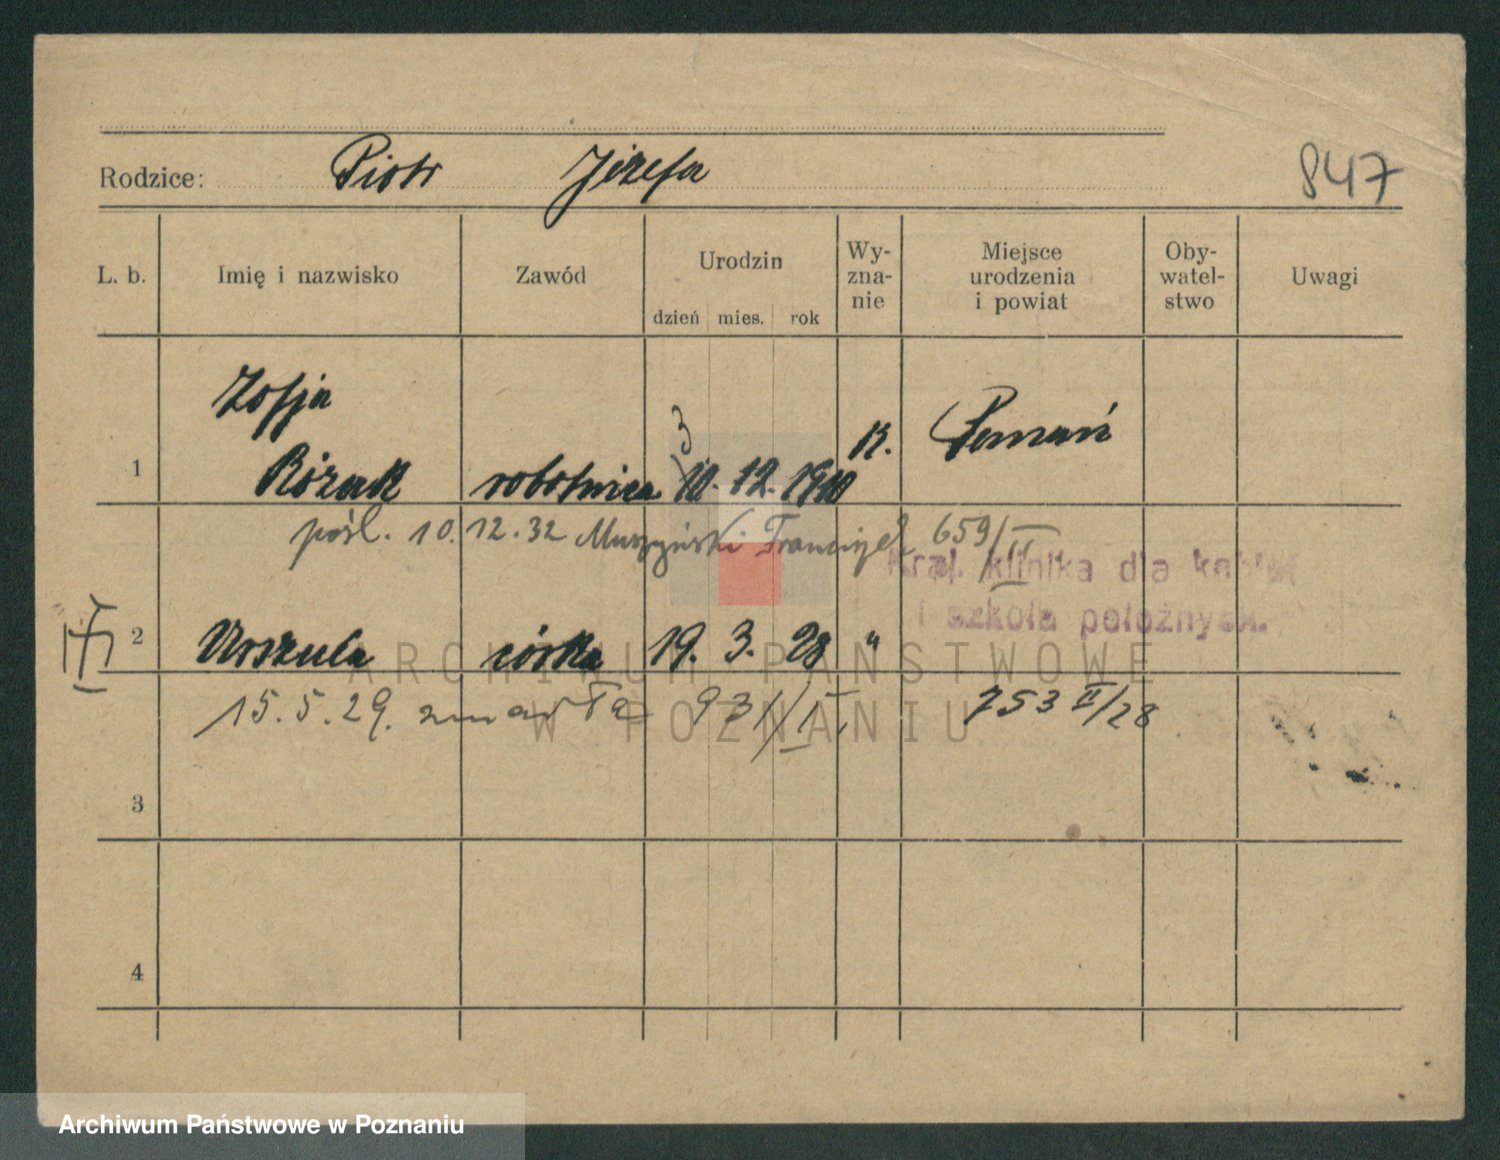 Rodzice: Piotr Józefa 847
L. b. Imię i nazwisko Zawód Urodzin dzień mies. rok Wy-zna-nie Miejsce urodzenia i powiat Oby-watel-stwo Uwagi
Zofja
1 Różak robotnica 10. 12. 1910 k. Poznań
3
pośl. 10.12.32 Muszyński Franciszek 659/II
Kraj. klinika dla kobiet
i szkoła położnych.
2 Urszula córka 19. 3. 28 "
15.5.29. zmarła 931/II. 753 II/28
3
4
ARCHIWUM PAŃSTWOWE
W POZNANIU
Archiwum Państwowe w Poznaniu